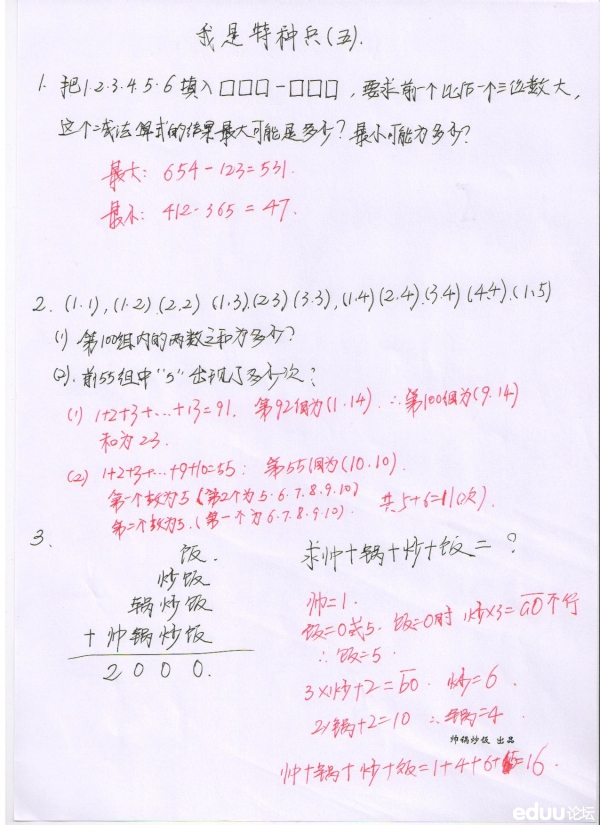 我是特种兵(五).
1. 把1.2.3.4.5.6填入□□□-□□□,要求前一个比后一个三位数大,
这个减法算式的结果最大可能是多少?最小可能为多少?
最大: 654-123=531.
最小: 412-365=47.
2. (1.1),(1.2).(2.2) (1.3).(2.3)(3.3),(1.4)(2.4).(3.4)(4.4).(1.5)
(1) 第100组内的两数之和为多少?
(2). 前55组中“5”出现了多少次?
(1) 1+2+3+…+13=91. 第92组为(1.14). ∴第100组为(9.14)
和为23.
(2) 1+2+3+…+9+10=55: 第55组为(10.10).
第一个数为5(第2个为5.6.7.8.9.10)
第二个数为5.(第一个为6.7.8.9.10). 共5+6=11(次).
3.
饭.
炒饭
锅炒饭
+帅锅炒饭
2000.
求帅+锅+炒+饭=?
帅=1.
饭=0或5. 饭=0时 炒×3=□0不行
∴饭=5.
3×炒+2=□0. 炒=6.
2×锅+2=10 ∴锅=4.
帅锅炒饭 出品
帅+锅+炒+饭=1+4+6+5=16.
eduu论坛